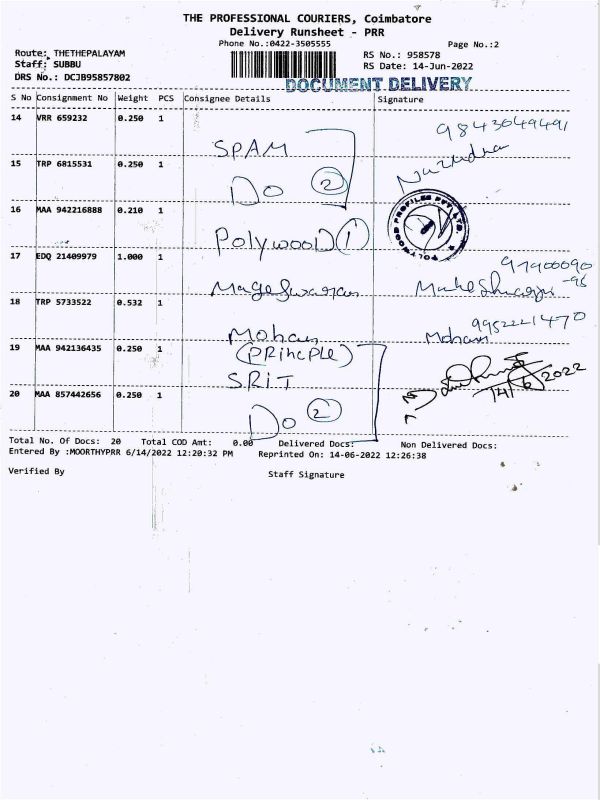 THE PROFESSIONAL COURIERS, Coimbatore
Delivery Runsheet - PRR
Phone No.:0422-3505555
Page No.:2
Route: THETHEPALAYAM
RS No.: 958578
Staff: SUBBU
RS Date: 14-Jun-2022
DRS No.: DCJB95857802
DOCUMENT DELIVERY
S No Consignment No Weight PCS Consignee Details Signature
14 VRR 659232 0.250 1 SPAM 9843649491
15 TRP 6815531 0.250 1 Do 2
16 MAA 942216888 0.210 1 Polywood 1 POLYWOOD PROFILES PVT. LTD.
17 EDQ 21409979 1.000 1 Mageswaran
18 TRP 5733522 0.532 1 Mohan Mohan
19 MAA 942136435 0.250 1 (PRincPLe) SRIT
20 MAA 857442656 0.250 1 Do 2 14/6/2022
Total No. Of Docs: 20 Total COD Amt: 0.00 Delivered Docs: Non Delivered Docs:
Entered By :MOORTHYPRR 6/14/2022 12:20:32 PM Reprinted On: 14-06-2022 12:26:38
Verified By Staff Signature